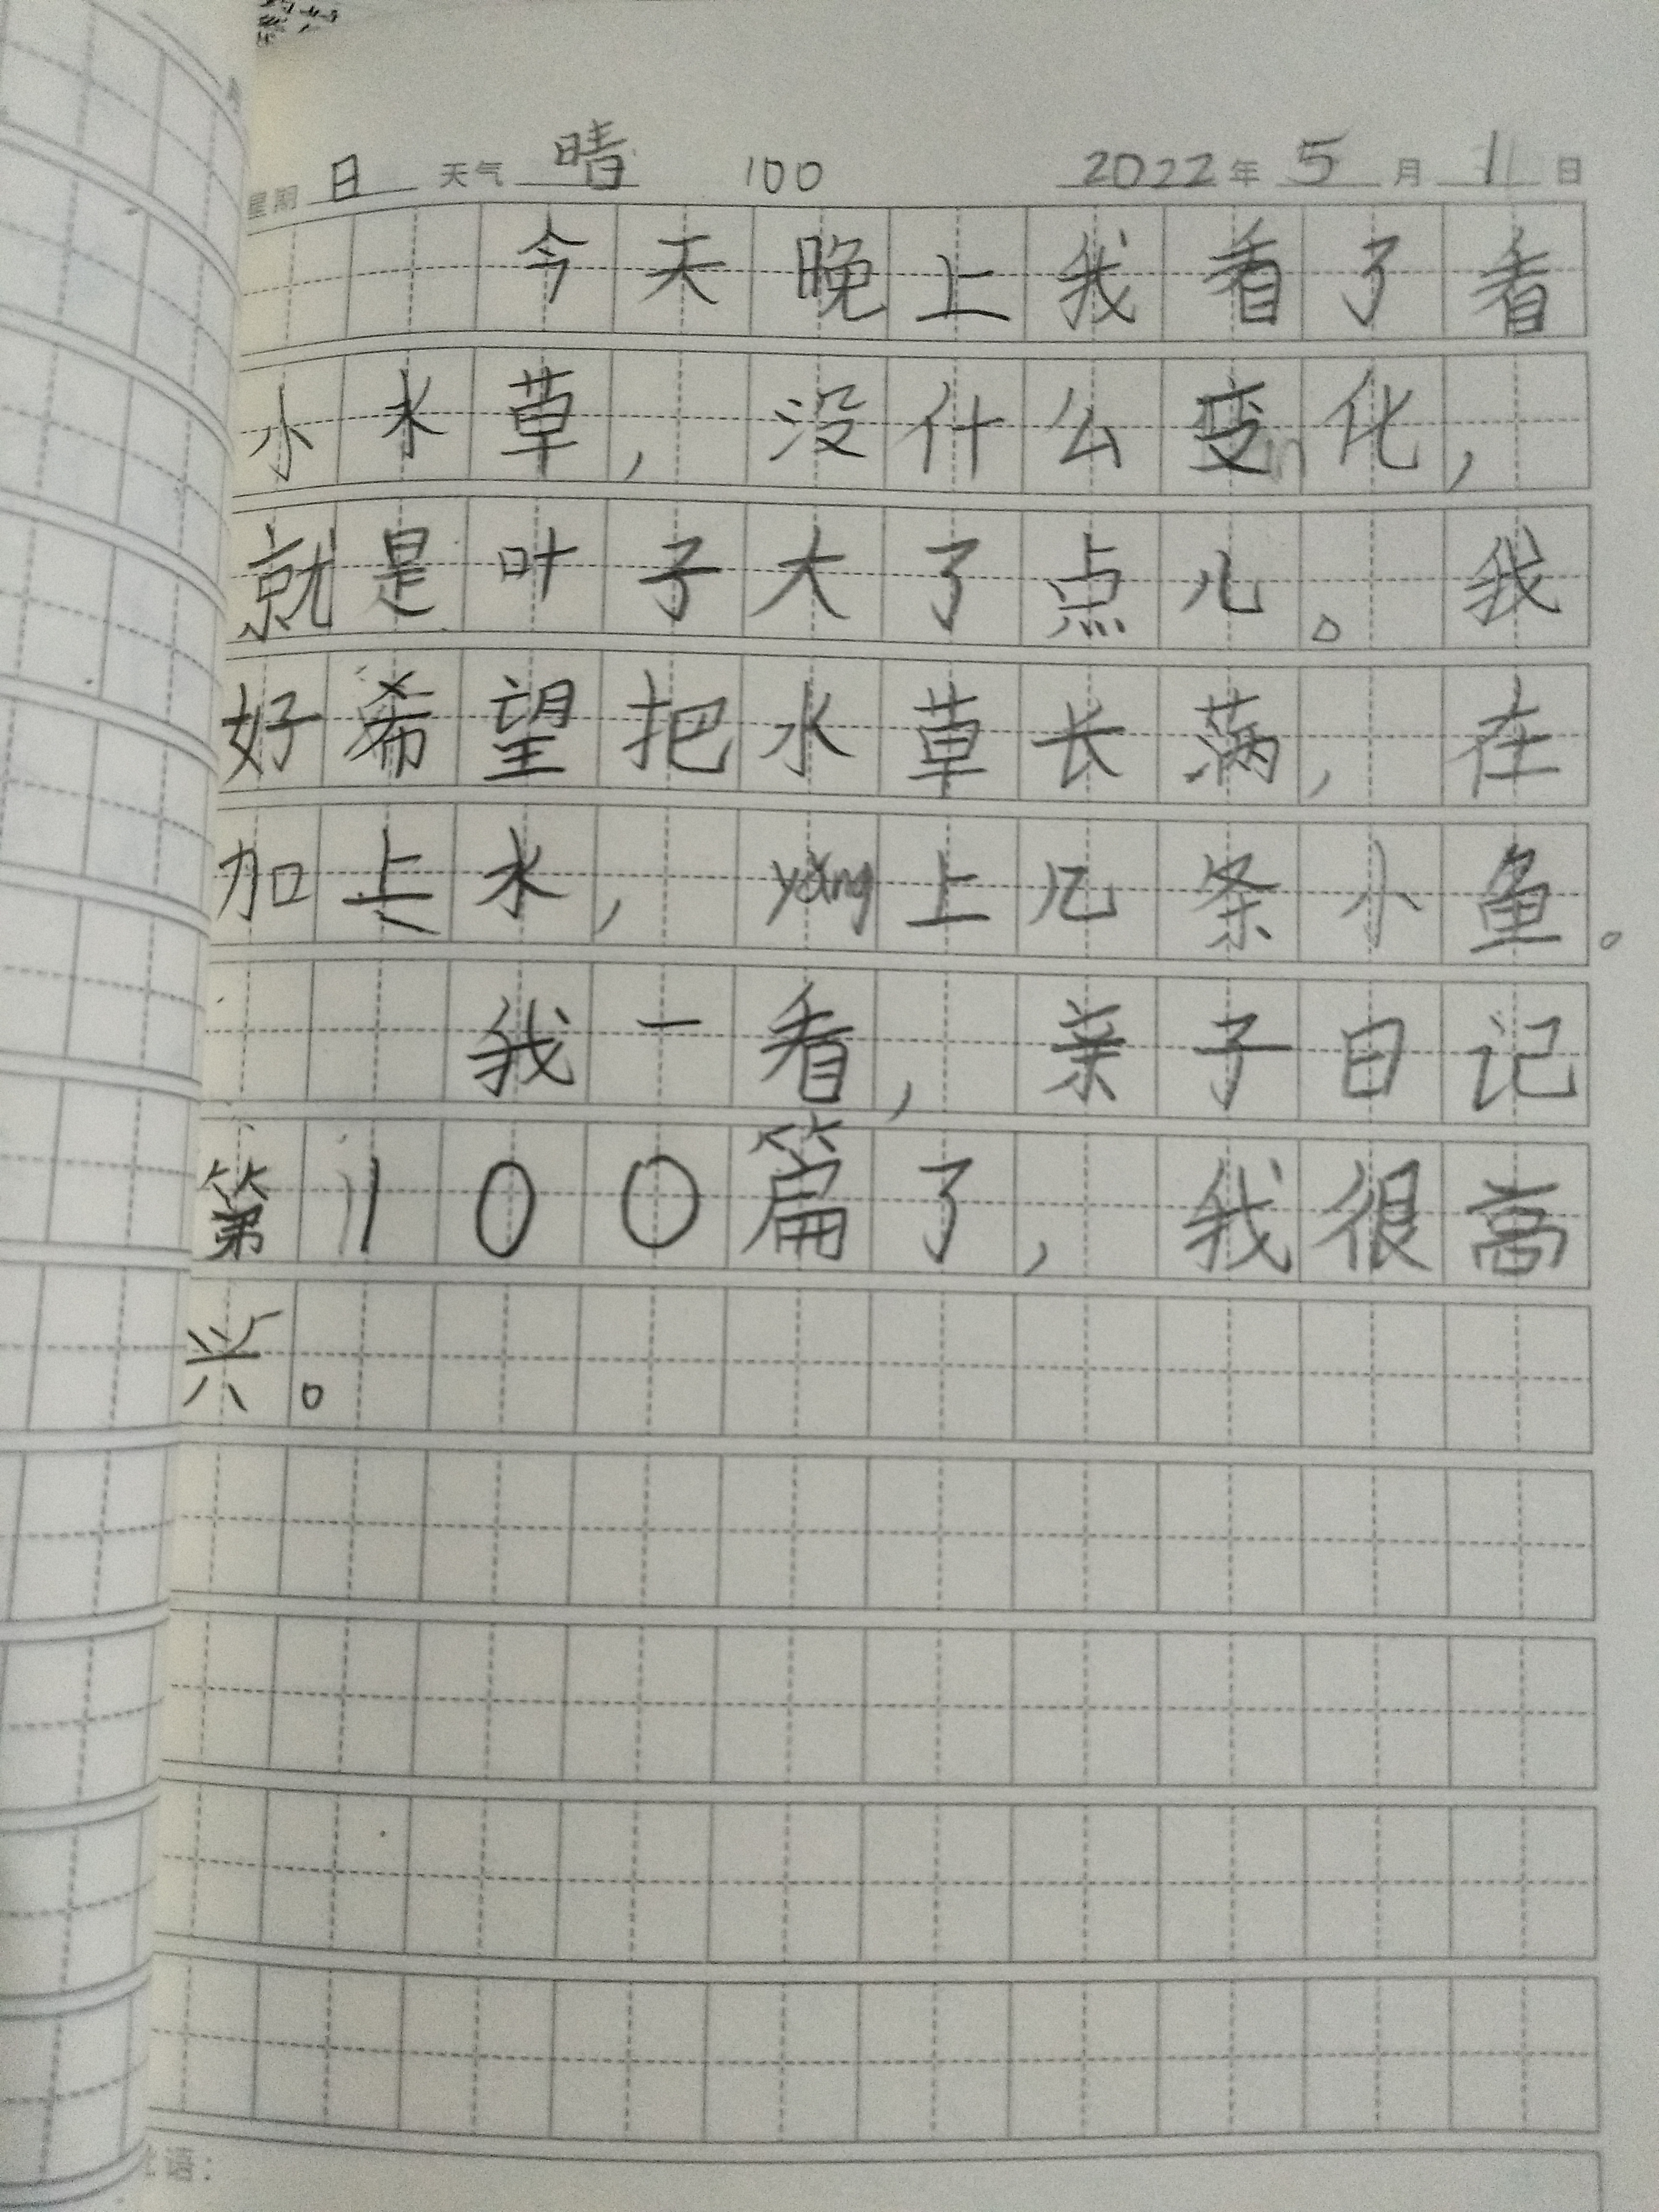 星期 日 天气 晴 100 2022 年 5 月 1 日
今天晚上我看了看
小水草，没什么变化，
就是叶子大了点儿。我
好希望把水草长满，在
加上水，yǎng上几条小鱼。
我一看，亲子日记
第100篇了，我很高
兴。